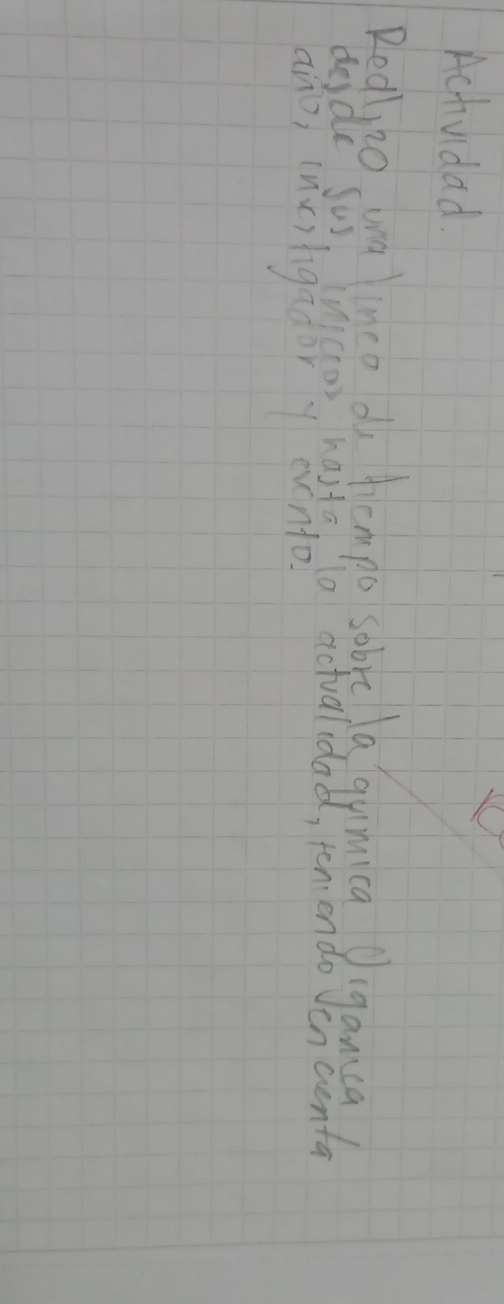 Actividad.
Realizo una linea de tiempo sobre la quimica Organica
desde sus inicios hasta la actualidad, teniendo en cuenta
año, investigador y evento.